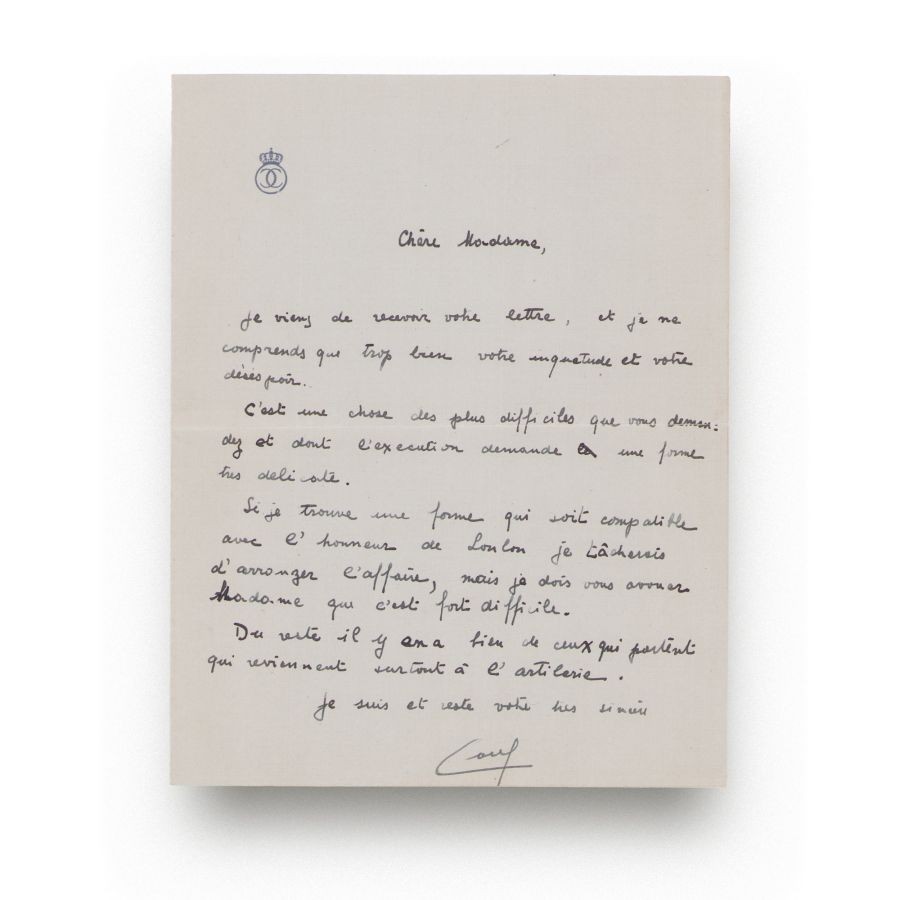 Chère Madame,
Je viens de recevoir votre lettre, et je ne
comprends que trop bien votre inquetude et votre
désespoir.
C'est une chose des plus difficiles que vous deman:
dez et dont l'execution demande une forme
tres delicate.
Si je trouve une forme qui soit compatible
avec l'honneur de Loulou je tâcherais
d'arranger l'affaire, mais je dois vous avouer
Madame que c'est fort difficile.
Du reste il y en a bien de ceux qui partent
qui reviennent surtout à l'artilerie.
Je suis et reste votre tres sincère